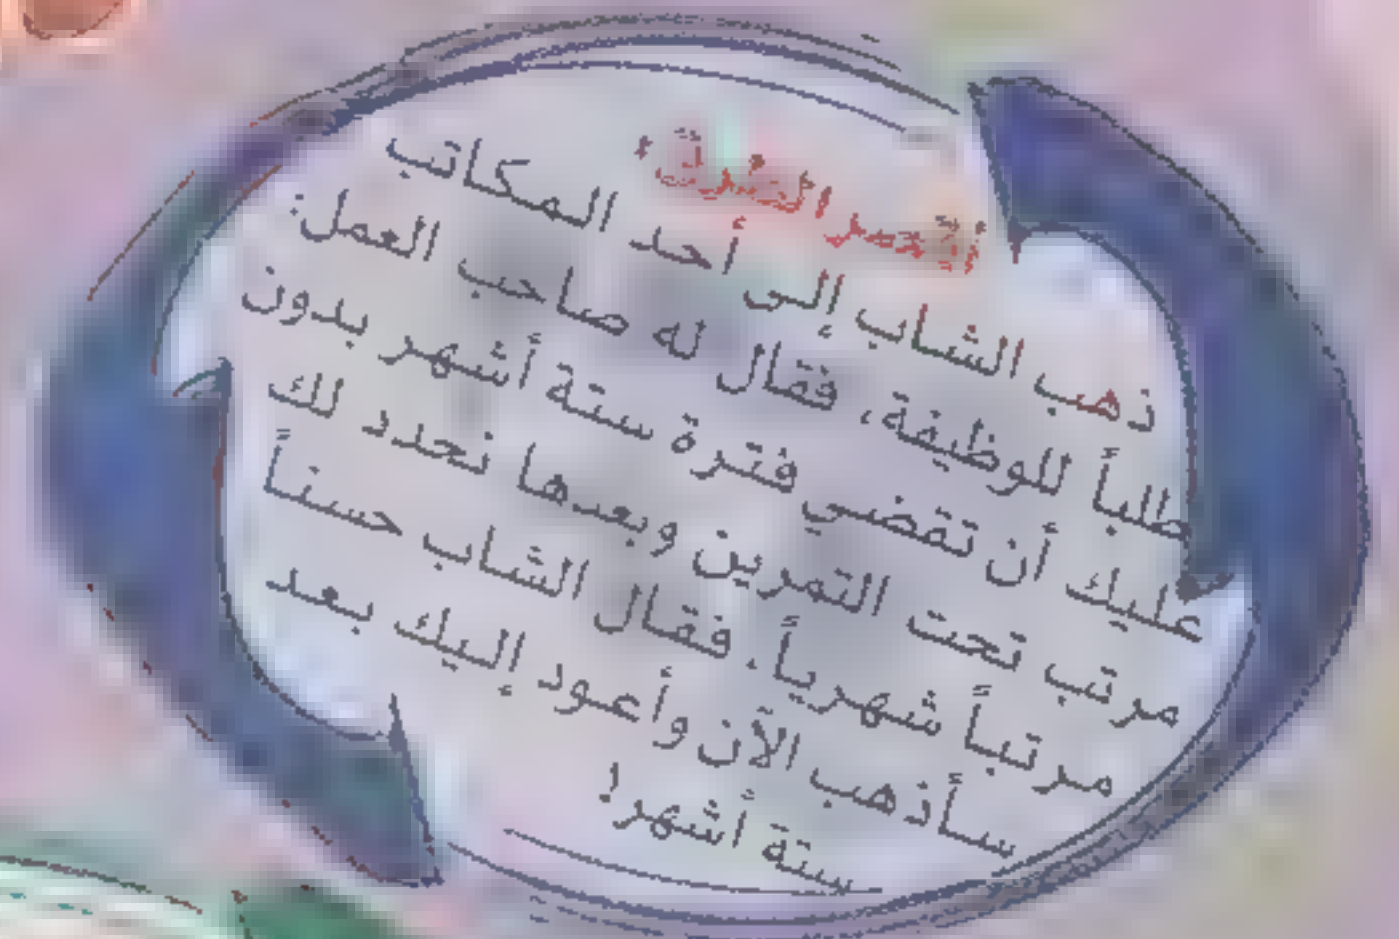 أقصر الطرق
ذهب الشاب إلى أحد المكاتب
طلباً للوظيفة، فقال له صاحب العمل:
عليك أن تقضي فترة ستة أشهر بدون
مرتب تحت التمرين وبعدها نحدد لك
مرتباً شهرياً، فقال الشاب حسناً
سأذهب الآن وأعود إليك بعد
ستة أشهر!